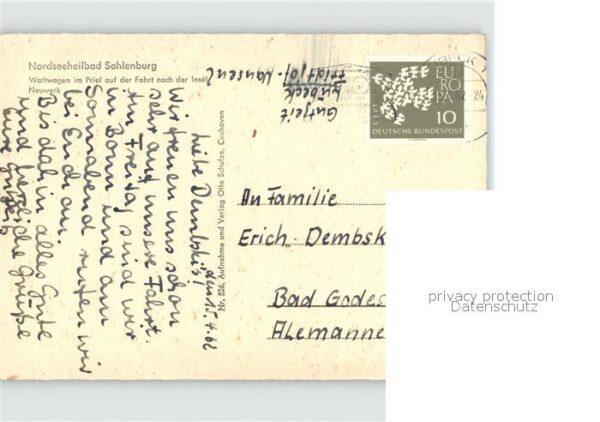 Nordseeheilbad Sahlenburg
Wattwagen im Priel auf der Fahrt nach der Insel
Neuwerk
Gutzeit
Lübeck
Fridtjof-Nansen
EUROPA
CEPT
10
DEUTSCHE BUNDESPOST
Nr. 526, Aufnahme und Verlag Otto Schulze, Cuxhaven
Liebe Dembski's!
4.62
Wir freuen uns schon
sehr auf unsere Fahrt.
Am Freitag sind wir
in Bonn und am
Sonnabend rufen wir
bei Euch an.
Bis dahin alles Gute
und herzliche Grüße
Eure
An Familie
Erich Dembsk
Bad Godes
Alemanne
privacy protection
Datenschutz